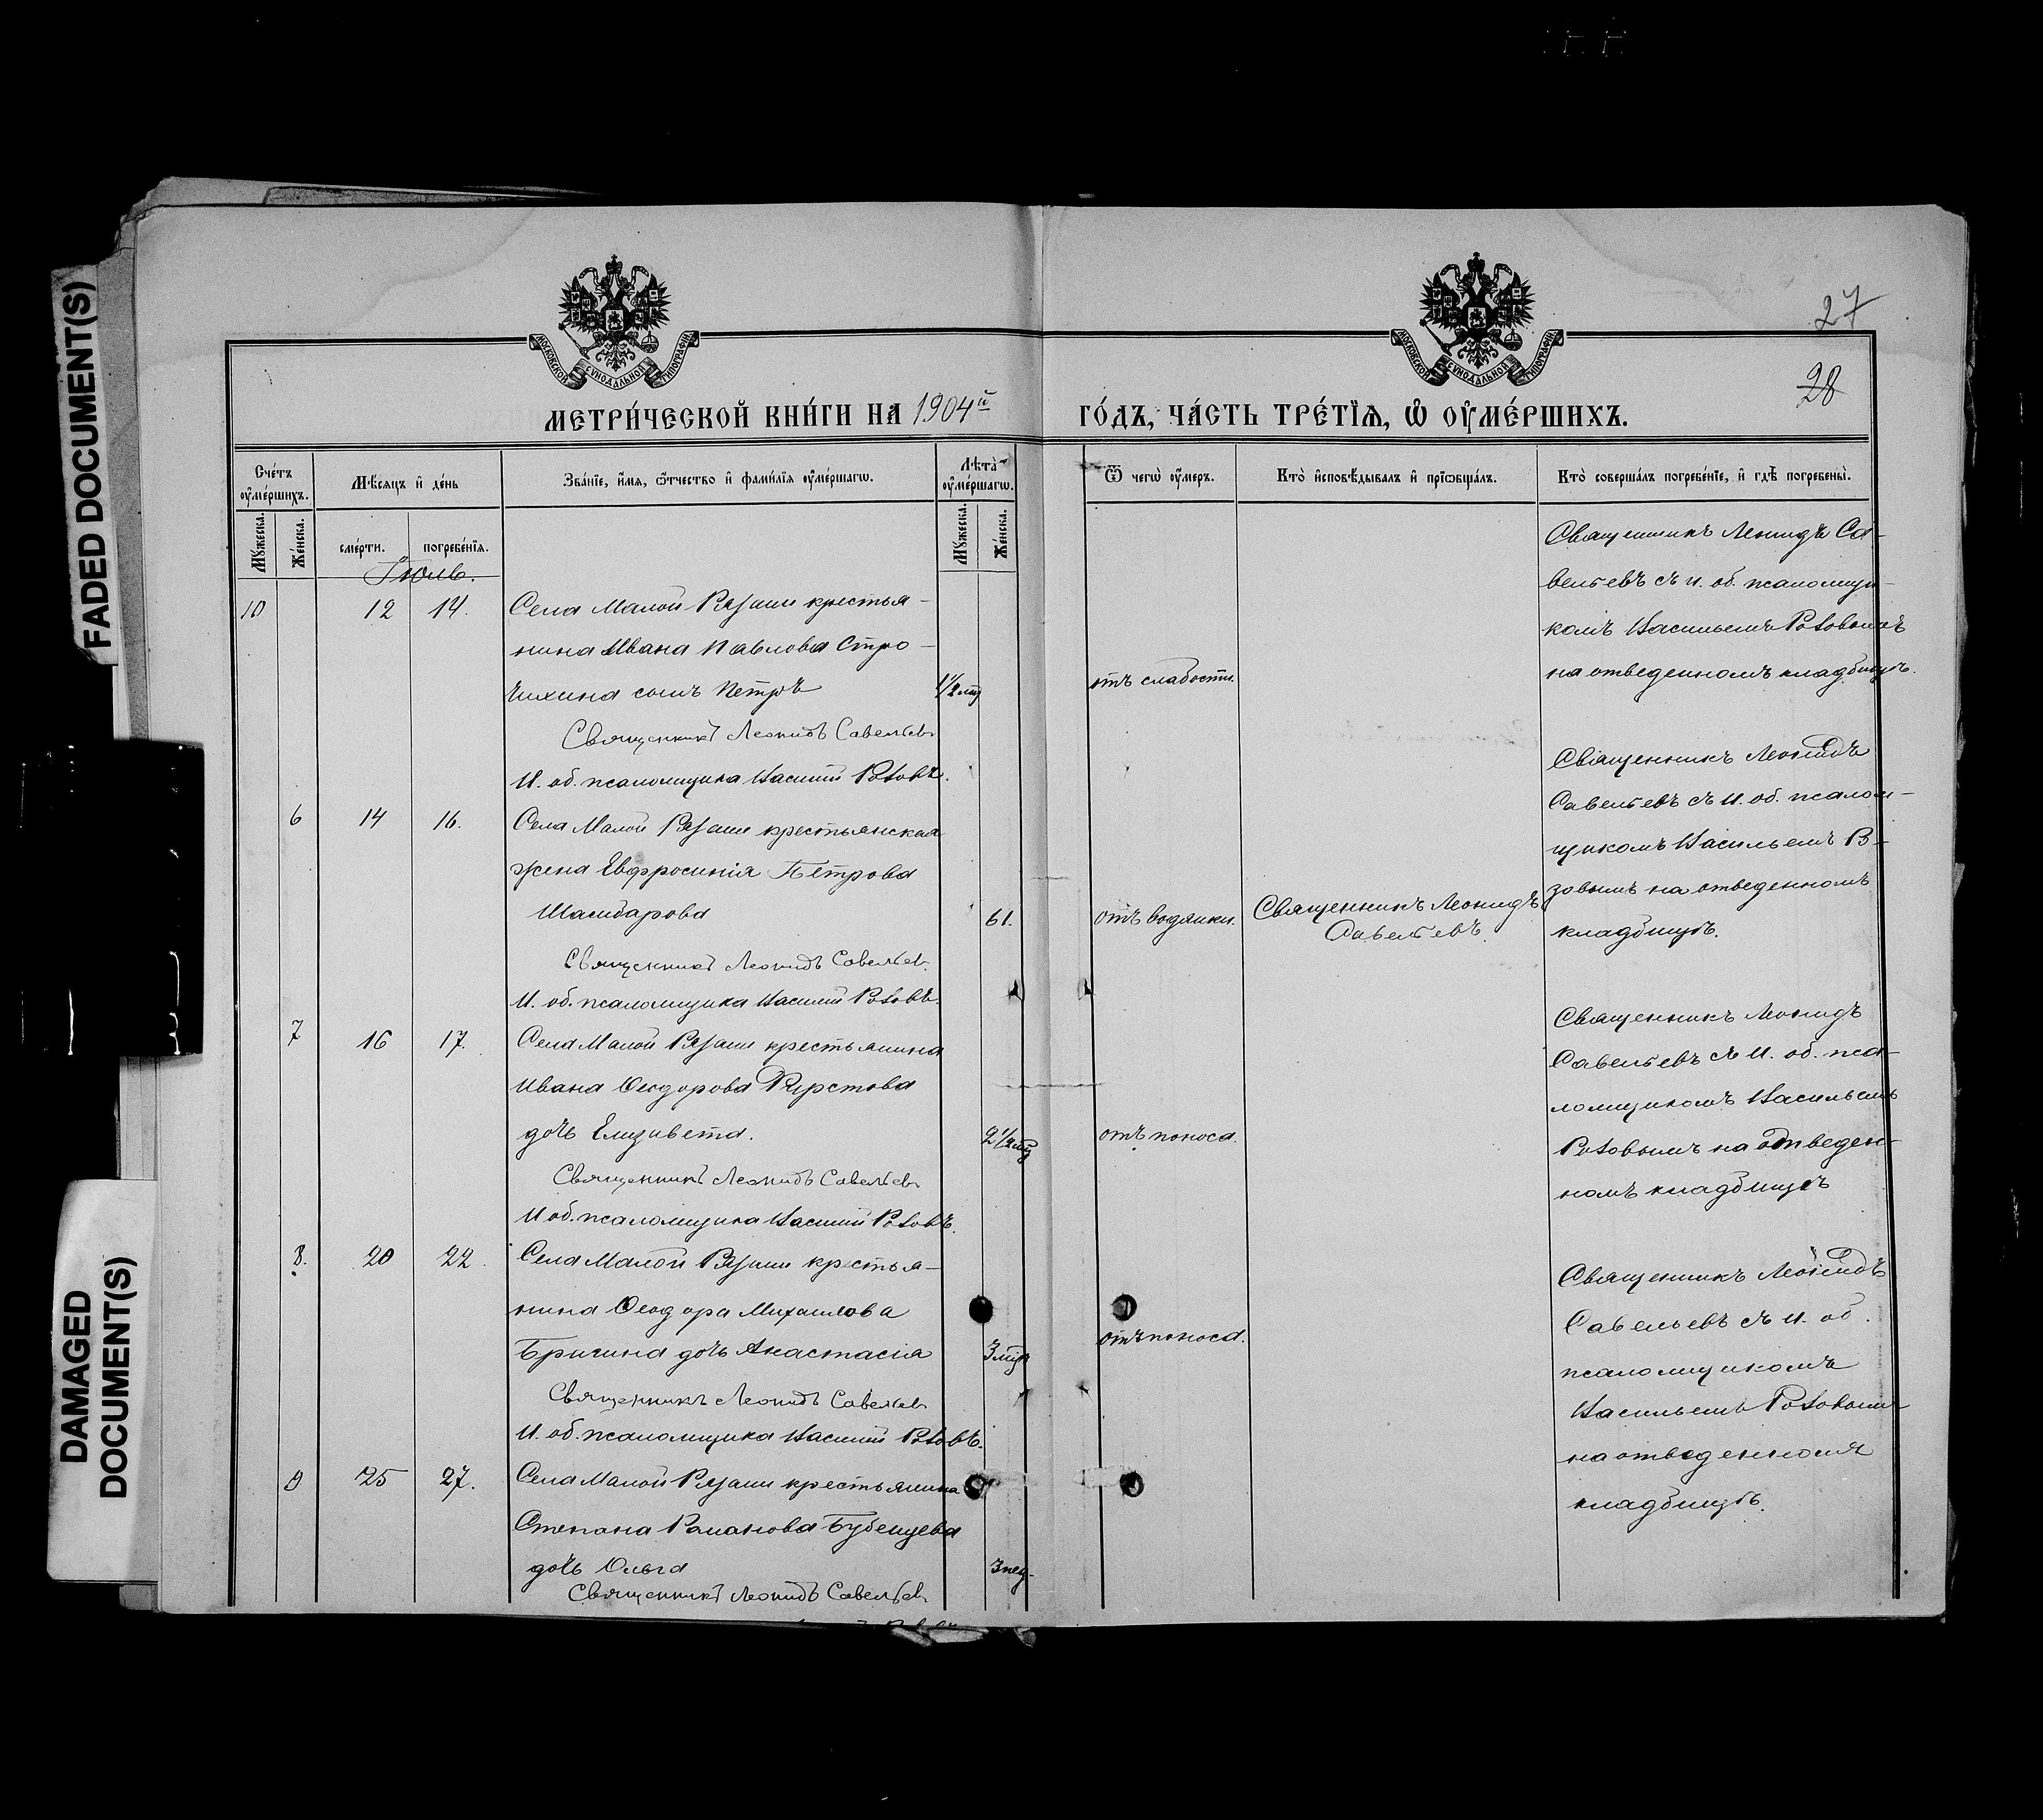 FADED DOCUMENT(S)
DAMAGED
DOCUMENT(S)
МОСКОВСКОЙ СѴНОДАЛЬНОЙ ТИПОГРАФІИ
МОСКОВСКОЙ СѴНОДАЛЬНОЙ ТИПОГРАФІИ
27
28
МЕТРИ́ЧЕСКОЙ КНИ́ГИ НА 1904й ГО́ДЪ, ЧА́СТЬ ТРЕ́ТЇЯ, Ѡ҆ ОУ҆МЕ́РШИХЪ.
Сче́тъ оу҆ме́ршихъ.
Мѣ́сяцъ и҆ де́нь
Зва́нїе, и҆́мя, ѻ҆́тчество и҆ фами́лїя оу҆ме́ршагѡ.
Лѣта̀ оу҆ме́ршагѡ.
Ѿ чегѡ̀ оу҆́меръ.
Кто̀ и҆сповѣ́дывалъ и҆ прїѡбща́лъ.
Кто̀ соверша́лъ погребе́нїе, и҆ гдѣ̀ погребены̀.
Му́жеска.
Же́нска.
сме́рти.
погребе́нїя.
Му́жеска.
Же́нска.
Іюль.
10 12 14.
Села Малой Рязани крестья-
нина Ивана Павлова Стро-
чихина сынъ Петръ
отъ слабости.
Священникъ Леонидъ Са-
вельевъ съ и. об. псаломщи-
комъ Васильемъ Розовымъ
на отведенномъ кладбищѣ.
Священникъ Леонидъ Савельевъ
И. об. псаломщика Василий Розовъ.
6 14 16.
Села Малой Рязани крестьянская
жена Евфросинія Петрова
61.
отъ водянки.
Священникъ Леонидъ
Савельевъ.
Священникъ Леонидъ
Савельевъ съ И. об. псалом-
щикомъ Васильемъ Р-
зовымъ на отведенномъ
кладбищѣ.
Священникъ Леонидъ Савельевъ
И. об. псаломщика Василий Розовъ.
7 16 17.
Села Малой Рязани крестьянина
Ивана Ѳеодорова
дочь Елизавета.
2 1/2
отъ поноса.
Священникъ Леонидъ
Савельевъ съ И. об. пса-
ломщикомъ Васильемъ
Розовымъ на отведен-
номъ кладбищѣ
Священникъ Леонидъ Савельевъ
И об. псаломщика Василий Розовъ.
8. 20 22.
Села Малой Рязани крестья-
нина Ѳеодора Михаилова
дочь Анастасія
отъ поноса.
Священникъ Леонидъ
Савельевъ съ И. об.
псаломщикомъ
Васильемъ Розовымъ
на отведенномъ
кладбищѣ.
Священникъ Леонидъ Савельевъ
И. об. псаломщика Василий Розовъ.
9 25 27.
Села Малой Рязани крестьянина
Степана Романова Бубенцева
дочь Ольга
3 нед.
Священникъ Леонидъ Савельевъ